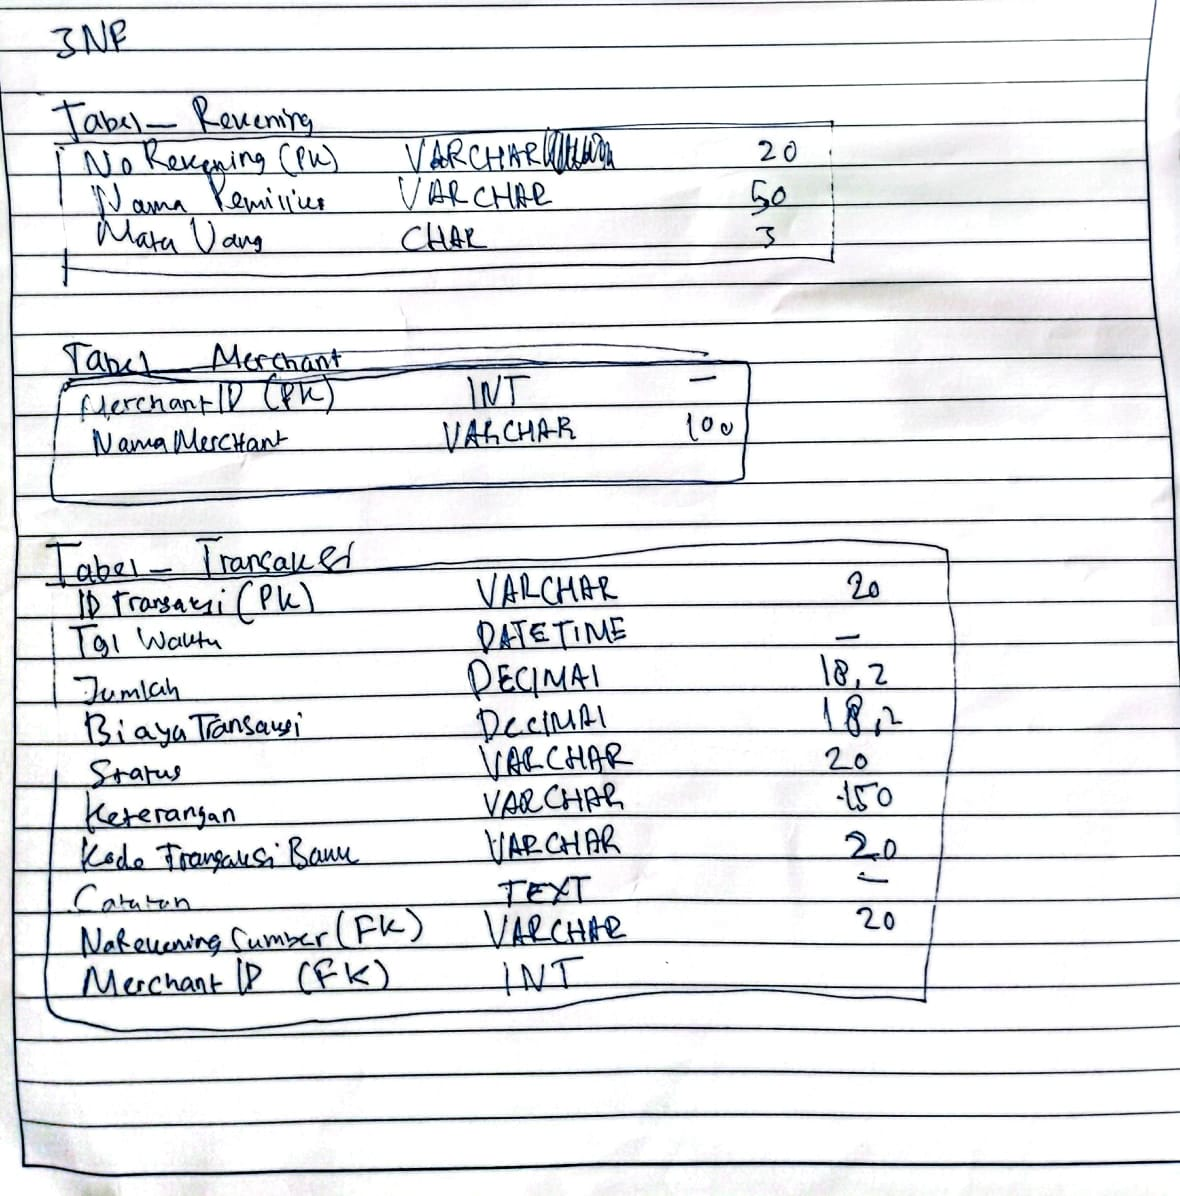 3NF
Tabel - Rekening
No Rekening (PK) VARCHAR 20
Nama Pemilik VARCHAR 50
Mata Uang CHAR 3
Tabel Merchant
Merchant ID (PK) INT -
Nama Merchant VARCHAR 100
Tabel - Transaksi
ID Transaksi (PK) VARCHAR 20
Tgl Waktu DATETIME -
Jumlah DECIMAL 18,2
Biaya Transaksi DECIMAL 18,2
Status VARCHAR 20
Keterangan VARCHAR 150
Kode Transaksi Bank VARCHAR 20
Catatan TEXT -
No Rekening Sumber (FK) VARCHAR 20
Merchant ID (FK) INT